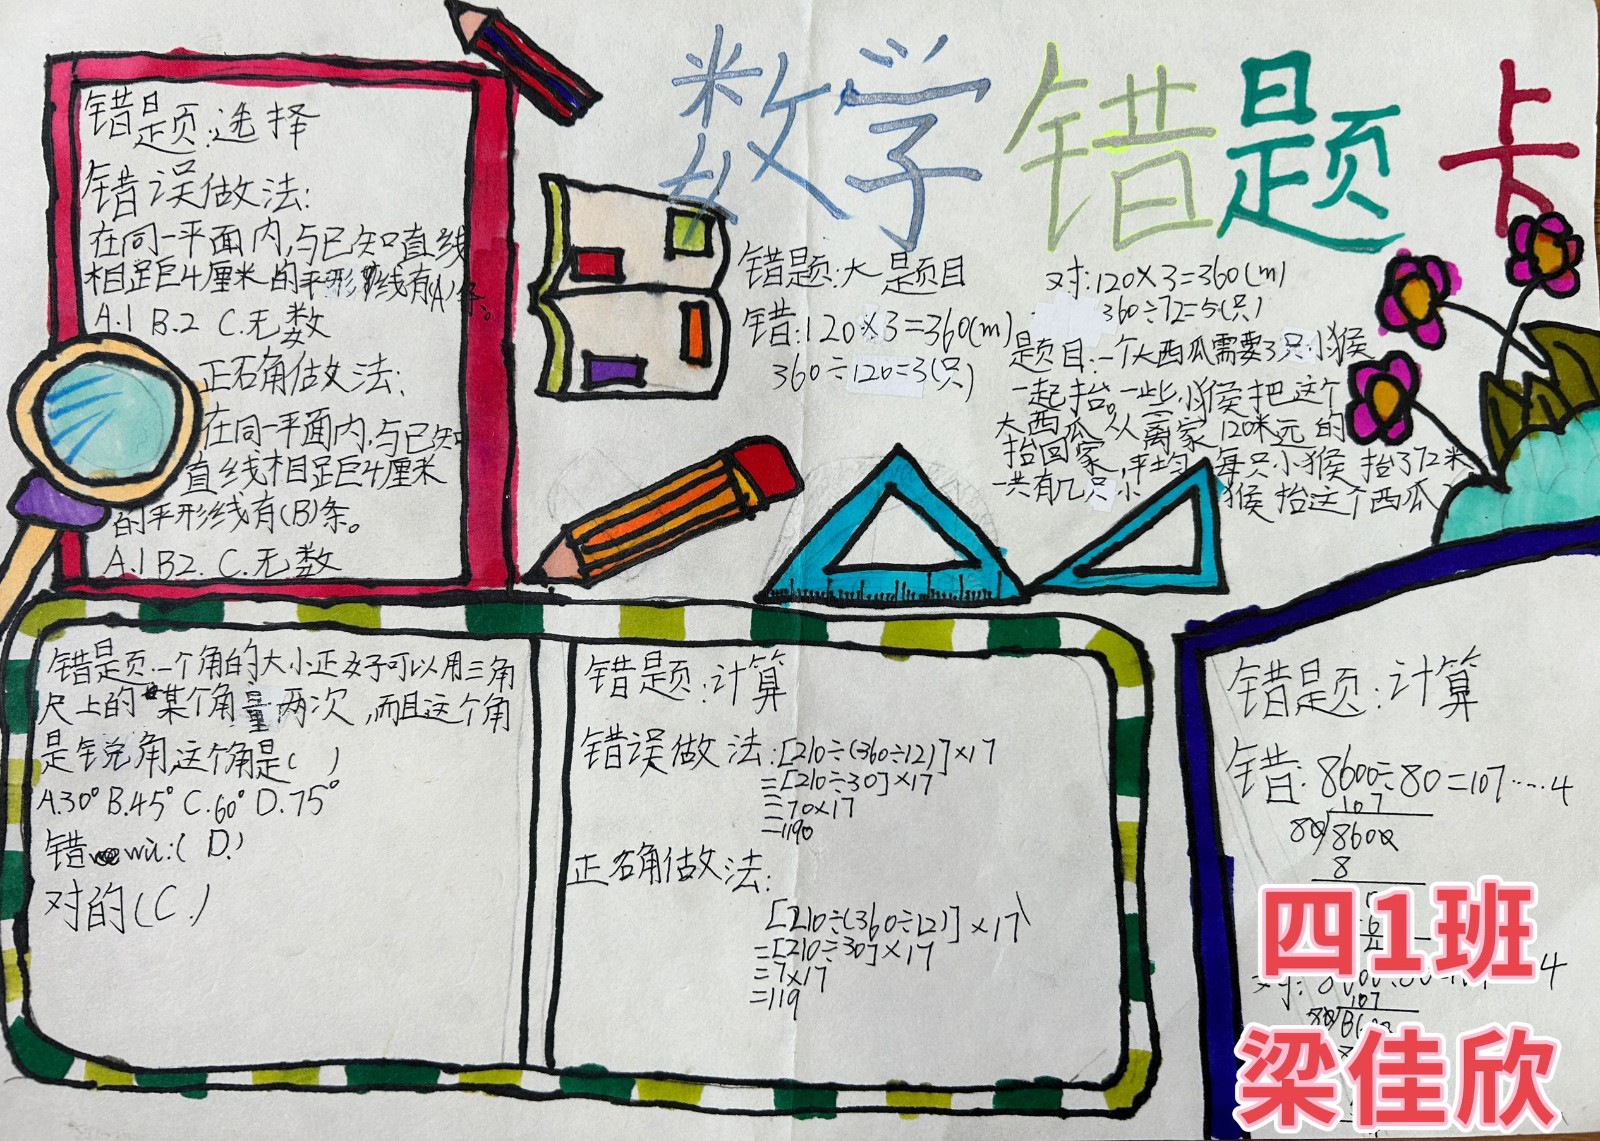 数学错题卡
错题:选择
错误做法:
在同一平面内,与已知直线
相距4厘米的平形线有(A)条。
A.1 B.2 C.无数
正确做法:
在同一平面内,与已知
直线相距4厘米
的平形线有(B)条。
A.1 B2. C.无数
错题:大题目
错:120×3=360(m)
360÷120=3(只)
对:120×3=360(m)
360÷72=5(只)
题目:一个大西瓜需要3只小猴
一起抬。一些小猴把这个
大西瓜从离家120米远的
抬回家,平均每只小猴抬了72米
一共有几只小猴抬这个西瓜
错题:一个角的大小正好可以用三角
尺上的某个角量两次,而且这个角
是锐角,这个角是( )
A.30° B.45° C.60° D.75°
错:(D.)
对的(C.)
错题:计算
错误做法:[210÷(360÷12)]×17
=[210÷30]×17
=70×17
=1190
正确做法:
[210÷(360÷12)]×17
=[210÷30]×17
=7×17
=119
错题:计算
错:8600÷80=107……4
107
80 8600
8
对:
4
107
四1班
梁佳欣